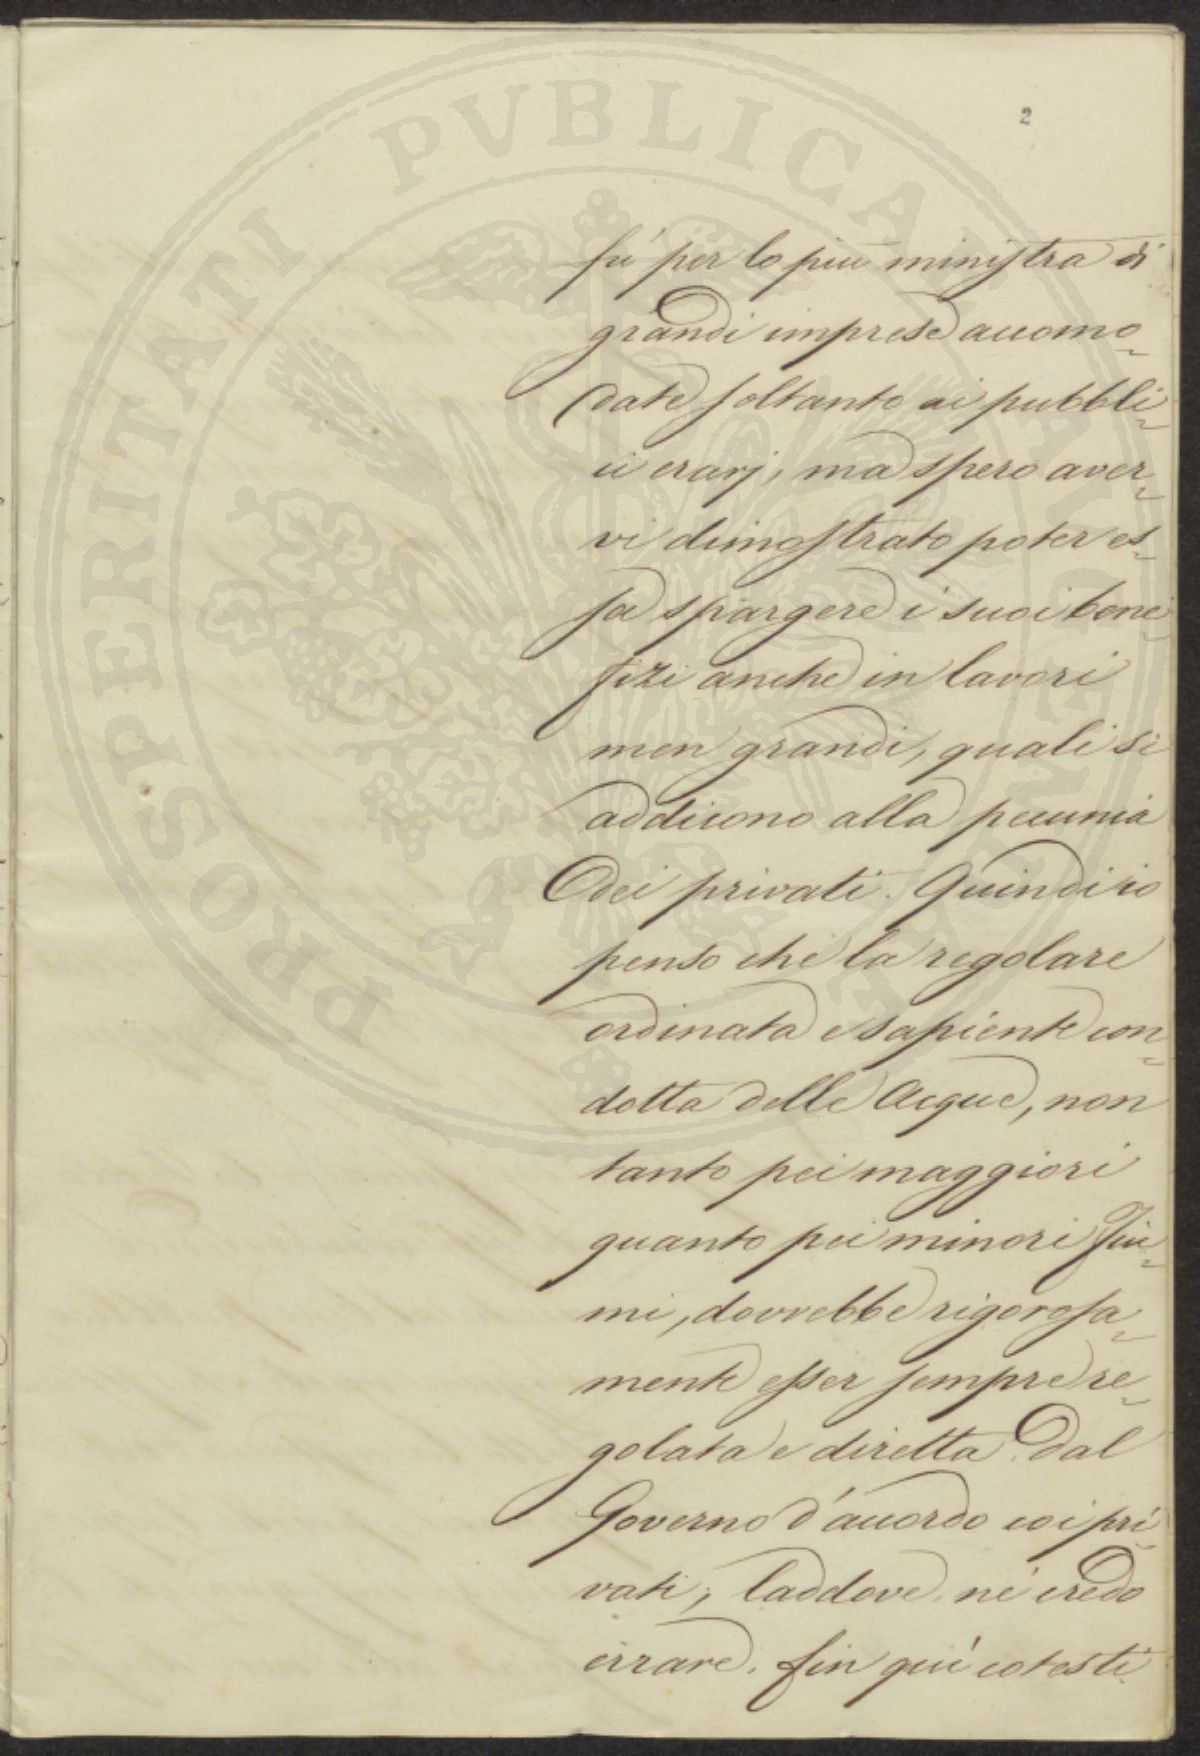 PROSPERITATI PVBLICAE AVGENDAE
2
fù per lo più ministra di
grandi imprese accomo-
date soltanto ai pubbli-
ci erarj, ma spero aver-
vi dimostrato poter es-
sa spargere i suoi bene-
fizi anche in lavori
men grandi, quali si
addicono alla pecunia
dei privati. Quindi io
penso che la regolare
ordinata e sapiente con-
dotta delle Acque, non
tanto pei maggiori
quanto pei minori Fiu-
mi, dovrebbe rigorosa-
mente esser sempre re-
golata e diretta dal
Governo d'accordo coi pri-
vati, laddove, né credo
errare, fin quì cotesti